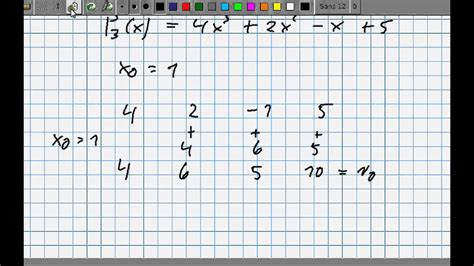 Sans 12
P₃(x) = 4x³ + 2x² - x + 5
x₀ = 1
4 2 -1 5
+ + +
x₀ = 1 4 6 5
4 6 5 10 = r₀